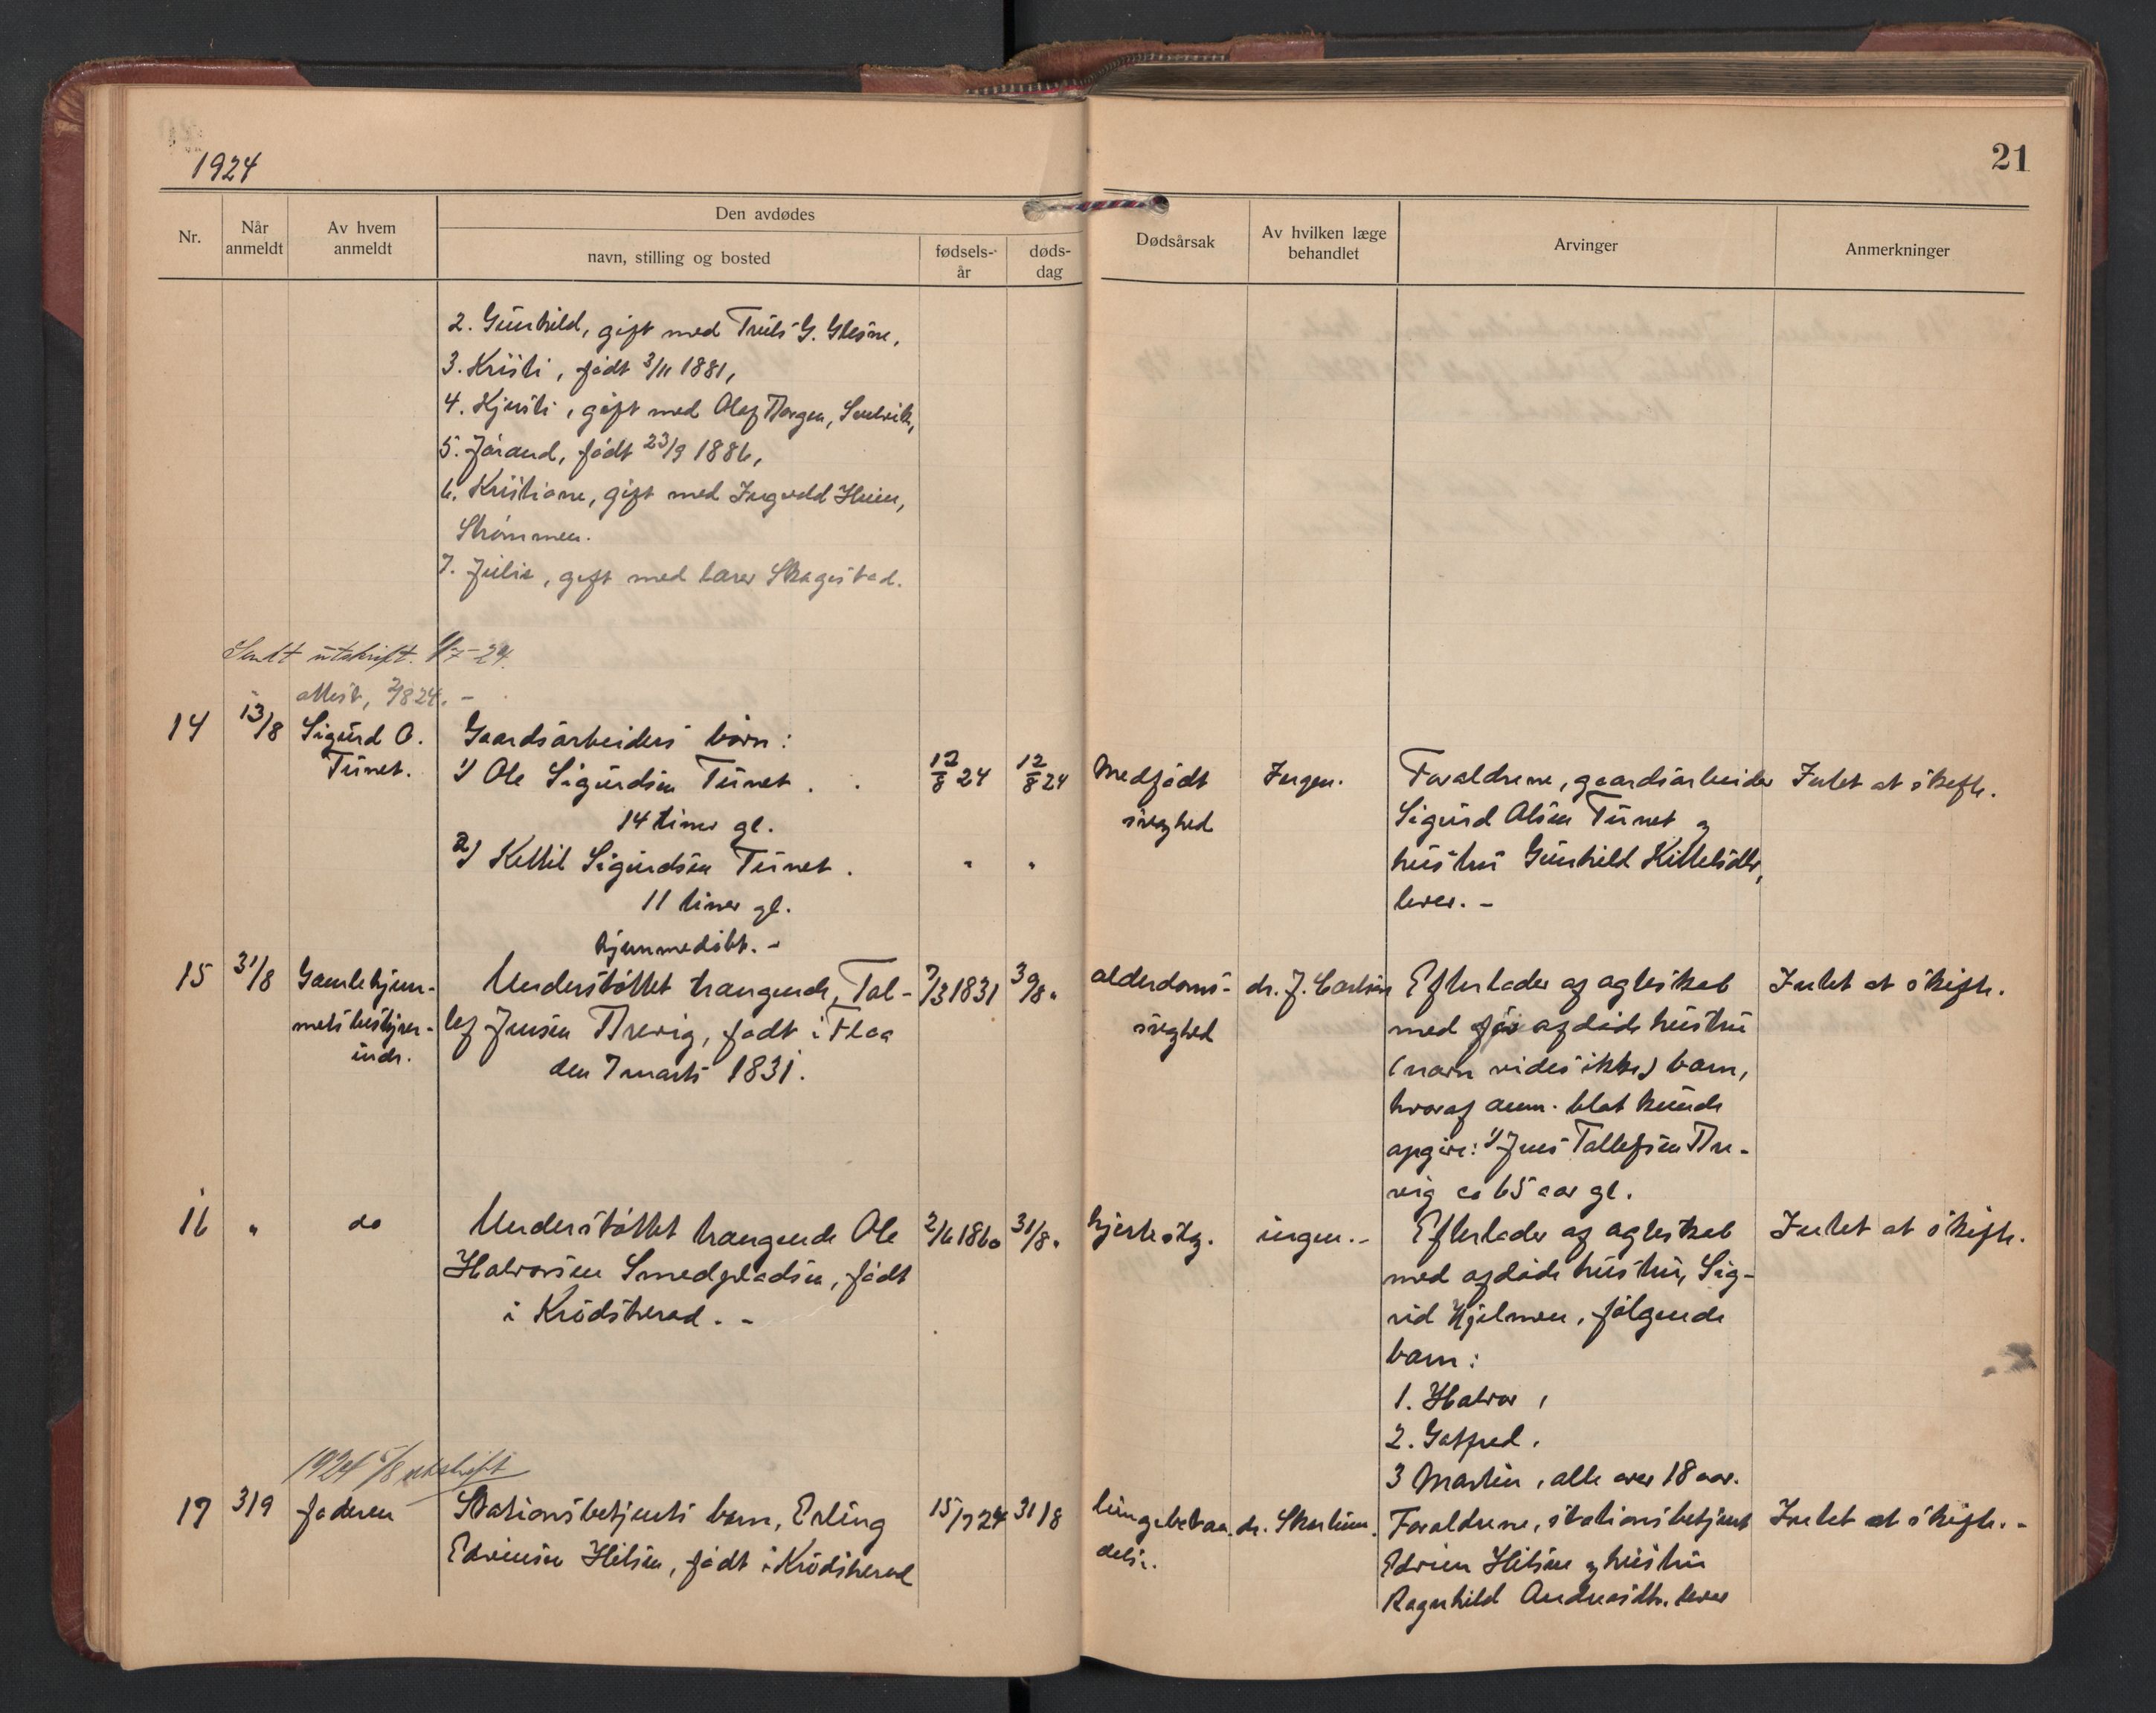 1924
21
Nr.
Når anmeldt
Av hvem anmeldt
Den avdødes
navn, stilling og bosted
fødsels-år
døds-dag
Dødsårsak
Av hvilken læge behandlet
Arvinger
Anmerkninger
2. Gunhild, gift med Truls G. Glesne,
3. Kristi, født 3/11 1881,
4. Kjersti, gift med Olaf Borgen,
5. Jørand, født 23/9 1886,
6. Kristiane, gift med Ingvald
Strømmen.
7. Julie, gift med lærer Skagestad.
Sendt utskrift. 1/7-24.
attest, 2/8 24. -
14
13/8
Sigurd O.
Tunet.
Gaardsarbeiders børn:
1) Ole Sigurdsen Tunet.
14 timer gl.
2) Kettil Sigurdsen Tunet.
11 timer gl.
hjemmedøbt. -
12/8 24
12/8 24
"
"
Medfødt
svaghed
Ingen.
Forældrene, gaardsarbeider
Sigurd Olsen Tunet og
hustru Gunhild Kittelsdtr,
lever. -
Intet at skifte.
15
31/8
Gamlehjem-
metsbestyrer-
inde.
Understøttet trængende, Tol-
lef Jensen Brevig, født i Flaa
den 7 marts 1831.
7/3 1831
30/8 "
alderdoms-
svaghed
dr. J. Carlsen
Efterlader og egteskab
med før afdøde hustru
(navn vides ikke) barn,
hvoraf anm. blot kunde
opgive: 1) Jens Tollefsen Bre-
vig ca 65 aar gl.
Intet at skifte.
16
"
do
Understøttet trængende Ole
Halvorsen Smedpladsen, født
i Krødsherad. -
2/6 1860
31/8 "
hjertesyg.
ingen. -
Efterlader og egteskab
med afdøde hustru, Sig-
rid Hjelmen, følgende
barn:
1. Halvor,
2. Gotfred,
3 Martin, alle over 18 aar.
Intet at skifte.
1924 5/8 utskrift
17
3/9
faderen
Stationsbetjents barn, Erling
Edvinsen Hilsen, født i Krødsherad
15/7 24
31/8
lungebetæn-
delse.
dr.
Forældrene, stationsbetjent
Edvin Hilsen og hustru
Ragnhild Andreasdtr. lever
Intet at skifte. -